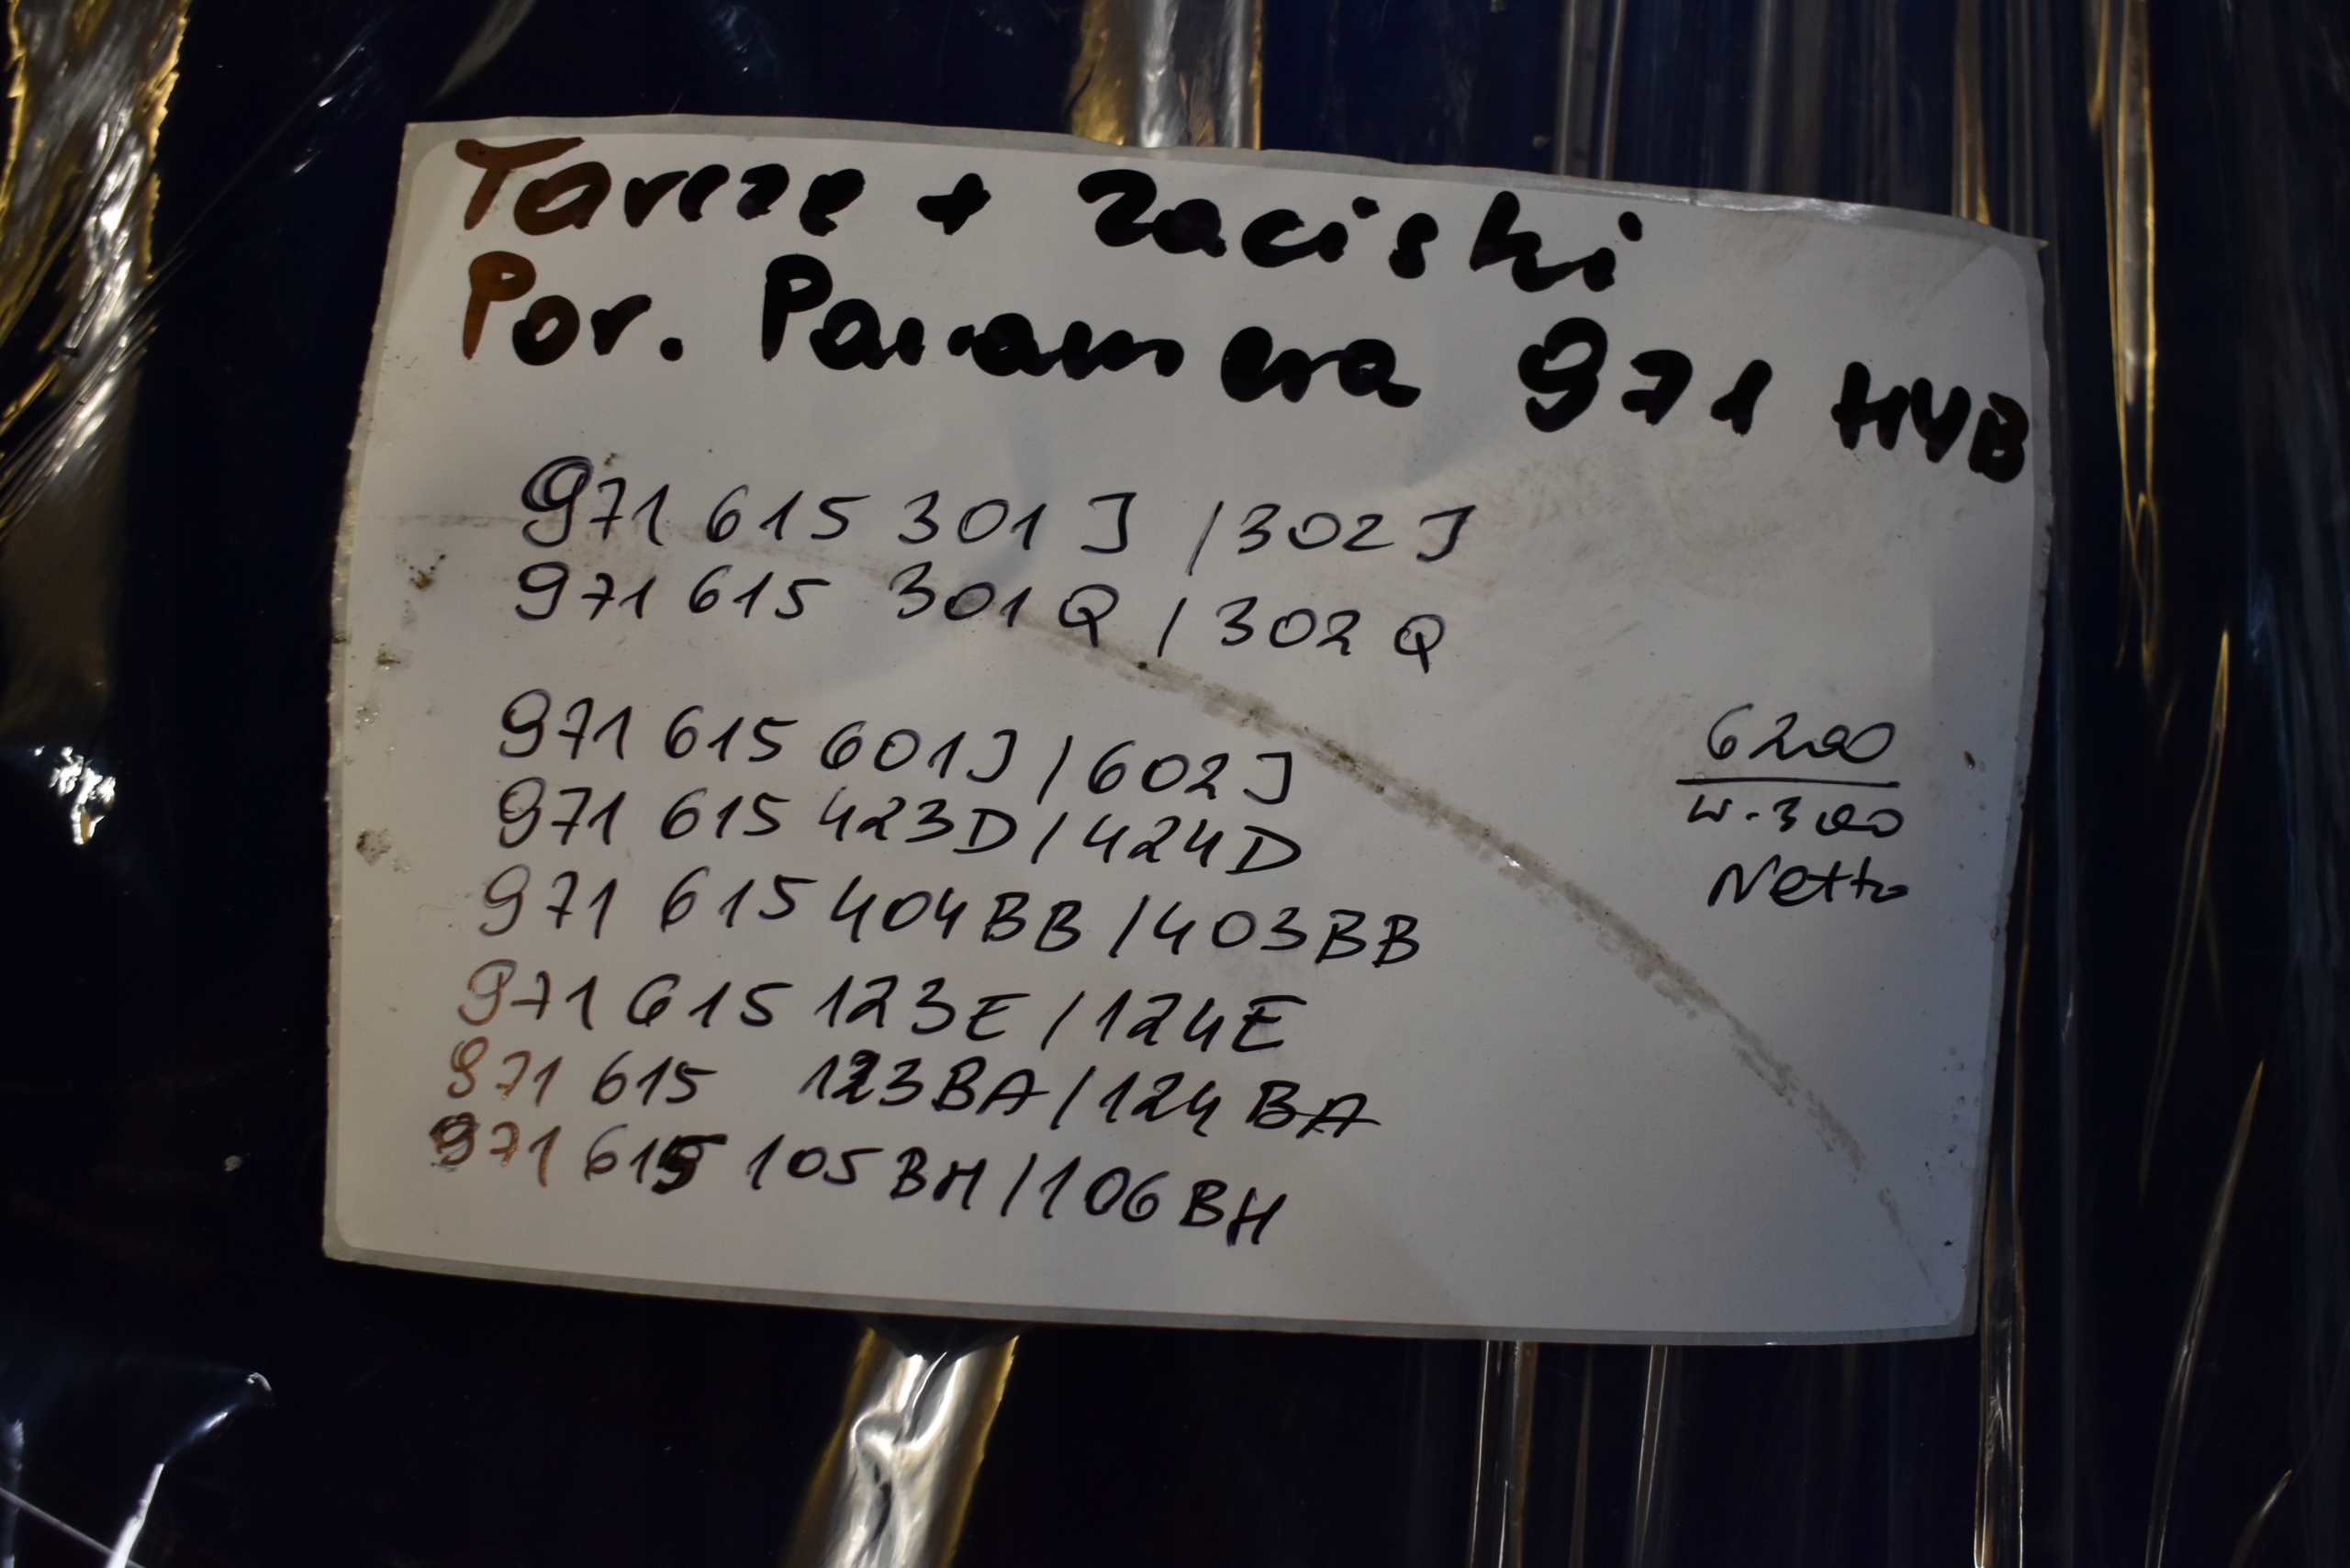 Tarcze + Zaciski
Por. Panamera 971 HYB
971 615 301 J / 302 J
971 615 301 Q / 302 Q
971 615 601 J / 602 J
971 615 423D / 424D
971 615 404BB / 403BB
971 615 123E / 124E
971 615 123BA / 124BA
971 615 105BH / 106BH
6200
w. 300
Netto